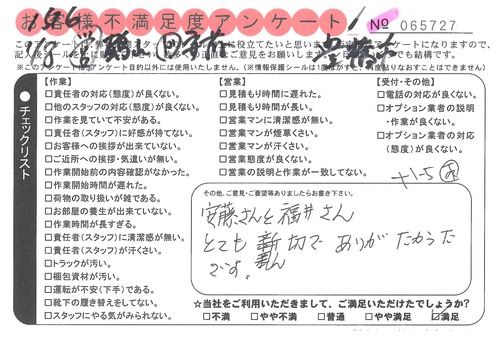 お客様不満足度アンケート
No 065727
【作業】
□責任者の対応(態度)が良くない。
□他のスタッフの対応(態度)が良くない。
□作業を見ていて不安がある。
□責任者(スタッフ)に好感が持てない。
□お客様への挨拶が出来ていない。
□ご近所への挨拶・気遣いが無い。
□作業開始前の内容確認がなかった。
□作業開始時間が遅れた。
□荷物の取り扱いが雑である。
□お部屋の養生が出来ていない。
□作業時間が長すぎる。
□責任者(スタッフ)に清潔感が無い。
□責任者(スタッフ)が汗くさい。
□トラックが汚い。
□梱包資材が汚い。
□運転が不安(下手)である。
□靴下の履き替えをしてない。
□スタッフにやる気がみられない。
【営業】
□見積もり時間に遅れた。
□見積もり時間が長い。
□営業マンに清潔感が無い。
□営業マンが煙草くさい。
□営業マンが汗くさい。
□営業態度が良くない。
□営業の説明と作業が一致してない。
【受付・その他】
□電話の対応が良くない。
□オプション業者の説明
・作業が良くない。
□オプション業者の対応
(態度)が良くない。
チェックリスト
その他、ご意見・ご要望等ありましたらお書き下さい。
安藤さんと福井さん
とても 親切で ありがたかった
です。
☆当社をご利用いただきまして、ご満足いただけたでしょうか?
□不満 □やや不満 □普通 □やや満足 ☑満足